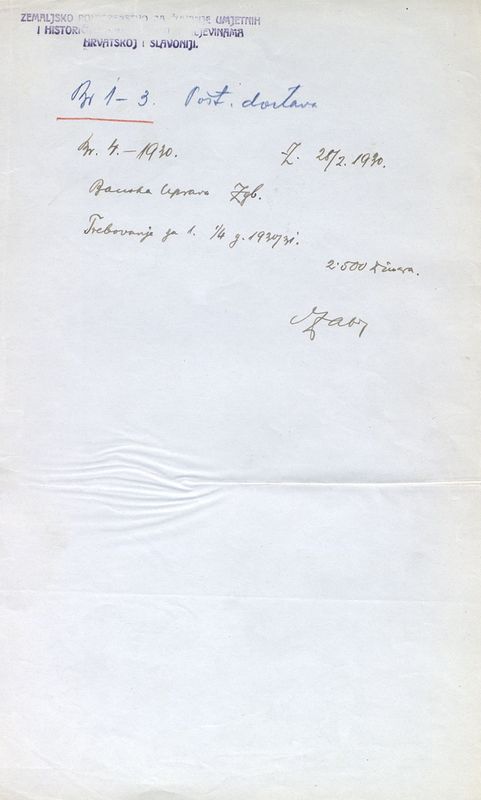 ZEMALJSKO POVJERENSTVO ZA ČUVANJE UMJETNIH
I HISTORIČKIH
HRVATSKOJ I SLAVONIJI.
Br 1-3. Post. dostava
Br. 4.-1930. Z. 28/2. 1930.
Banska Uprava Zgb.
Trebovanje za 1. 1/4 g. 1930/31.
2.500 Dinara.